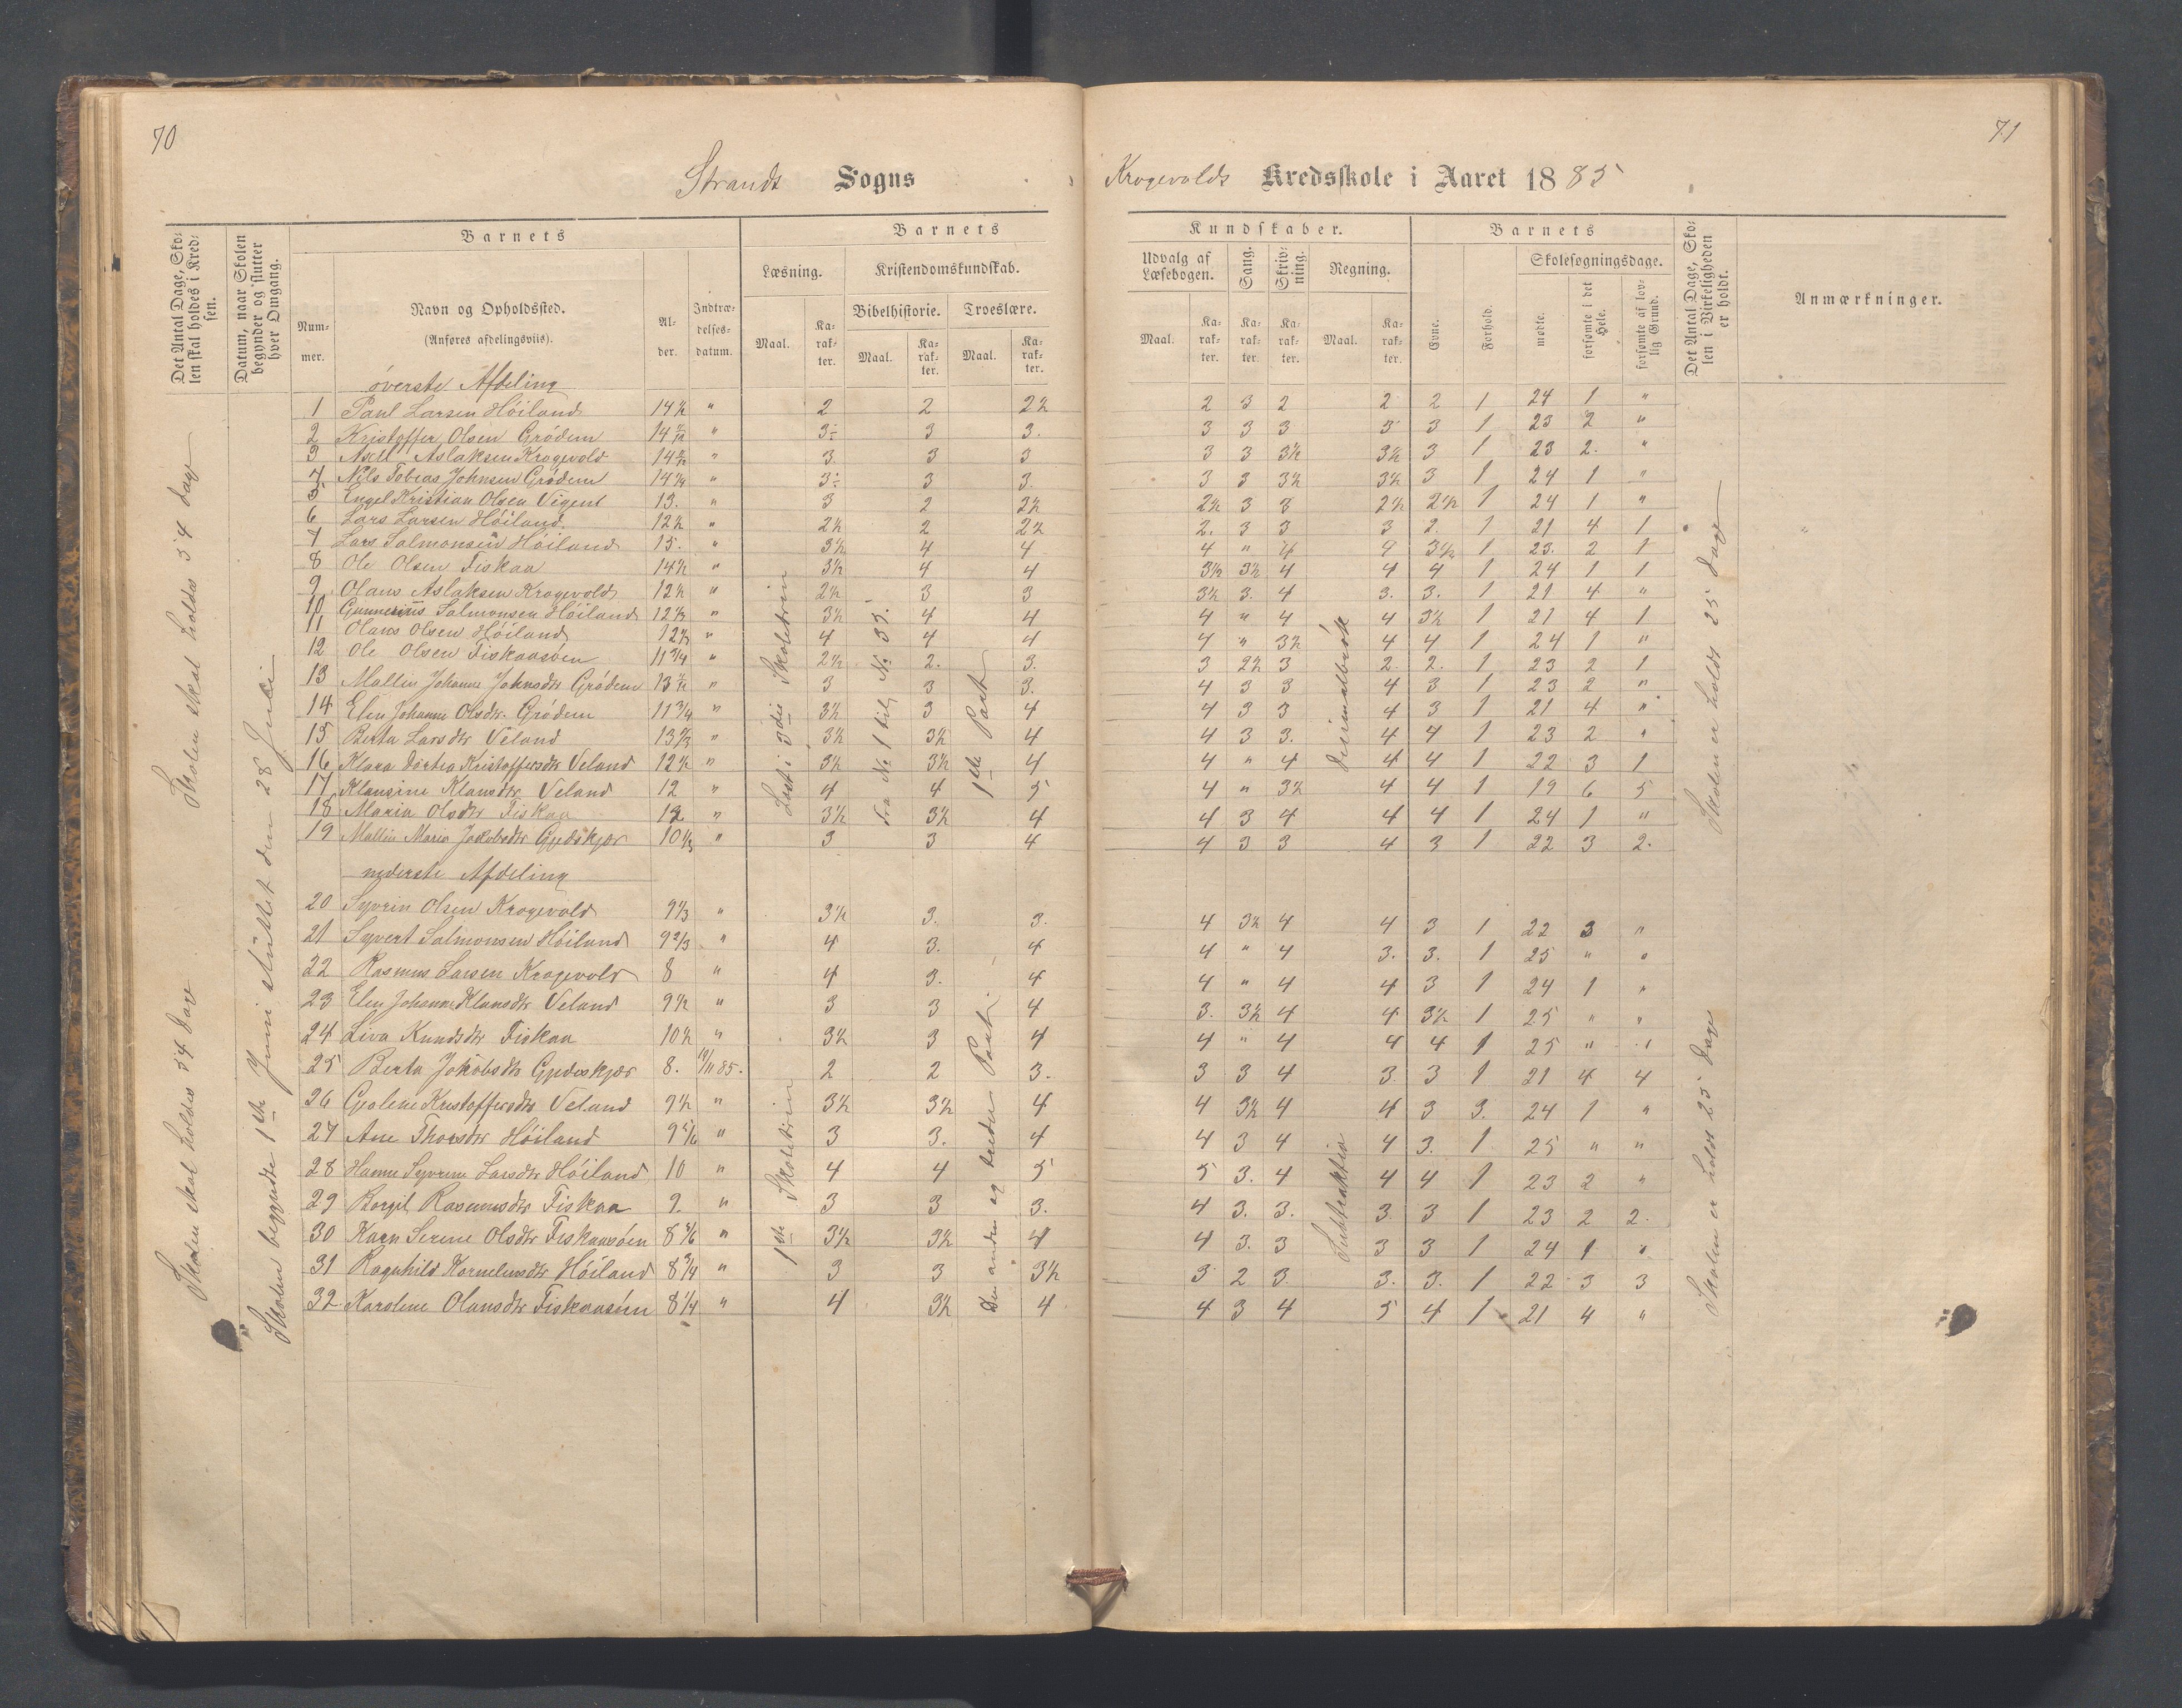 70
Strands Sogns
Det Antal Dage, Skolen skal holdes i Kredsen.
Datum, naar Skolen begynder og slutter hver Omgang.
Barnets
Nummer.
Navn og Opholdssted.
(Anføres afdelingsviis).
Alder.
Indtrædelsesdatum.
Barnets
Læsning.
Kristendomskundskab.
Bibelhistorie.
Troeslære.
Maal.
Karakter.
Maal.
Karakter.
Maal.
Karakter.
Skolen skal holdes 54 Dage
Skolen skal holdes 54 Dage
Skolen begyndte 1ste Juni sluttet den 28 Juli
øverste Afdeling
1 Paul Larsen Høiland 14½ " 2 2 2½
2 Kristoffer Olsen Grødem " 3÷ 3 3.
3 Axel Aslaksen Krogevold " 3. 3 3
4 Nils Tobias Johnsen Grødem 14¼ " 3÷ 3 3.
5 Engel Kristian Olsen Vigent 13. " 3 2 2½
6 Lars Larsen Høiland. 12½ " 2½ 2 2½
7 Lars Salmonsen Høiland 15. " 3½ 4 4
8 Ole Olsen Fiskaa 14½ " 3½ 4 4
9 Olaus Aslaksen Krogevold 12½ " 2½ 3 3
10 Gunnerius Salmonsen Høiland 12½ " 3½ 4 4
11 Olaus Olsen Høiland " 4 4 4
12 Ole Olsen Fiskaasøen 11¾ " 2½ 2. 3.
13 Mallin Johanne Johnsdtr Grødem " 3 3 3.
14 Elen Johanne Olsdtr. Grødem 11¾ " 3½ 3 4
15 Berta Larsdtr Veland 13⅔ " 3½ 3½ 4
16 Klara Dortea Kristoffersdtr Veland 12½ " 3½ 3½ 4
17 Klausine Klausdtr Veland 12 " 4 4 5
18 Maria Olsdtr Fiskaa 12 " 3½ 3½ 4
19 Mallin Maria Jakobsdtr Gjedskjær 10⅓ " 3 3 4
nederste Afdeling
20 Syvrin Olsen Krogevold 9⅓ " 3½ 3. 3.
21 Syvert Salmonsen Høiland 9⅔ " 4 3. 4
22 Rasmus Larsen Krogevold 8 " 4 3. 4
23 Elen Johanne Klausdtr Veland 9½ " 3 3 4
24 Liva Knudsdtr Fiskaa 10½ " 3½ 3 4
25 Berta Jakobsdtr Gjedeskjær 8. 11/11 85. 2 2 3.
26 Gjolene Kristoffersdtr Veland 9½ " 3½ 3½ 4
27 Ane Thorsdtr Høiland 9⅚ " 3 3. 4
28 Hanne Syvrine Larsdtr Høiland 10 " 4 4 5
29 Borgil Rasmusdtr Fiskaa 9. " 3 3 3.
30 Karn Serine Olsdtr Fiskaasøen 8⅚ " 3½ 3½ 4
31 Ragnhild Korneliusdtr Høiland 8¾ " 3 3 3½
32 Karoline Olausdtr Fiskaasøen 8¼ " 4 3½ 4
Læst i 3die Skoletrin
fra No 1 til No 35.
1ste Part
1ste Skoletrin
Den anden og tredie Part
71
Krogevolds Kredsskole i Aaret 1885
Kundskaber.
Udvalg af Læsebogen.
Sang.
Skrivning.
Regning.
Maal.
Karakter.
Karakter.
Karakter.
Maal.
Karakter.
Barnets
Evne.
Forhold.
Skolesøgningsdage.
mødte.
forsømte i det Hele.
forsømte af lovlig Grund.
Det Antal Dage, Skolen i Virkeligheden er holdt.
Anmærkninger.
2 3 2 2 2 1 24 1 "
3 3 3 3 3 1 23 2 "
3 3 3½ 3½ 3 1 23 2. "
3 3 3½ 3½ 3 1 24 1 "
2½ 3 3 2½ 2½ 1 24 1 "
2. 3 3 3 2. 1 21 4 1
4 " 4 4 3½ 1 23. 2 1
3½ 3½ 4 4 4 1 24 1 1
3½ 3. 4 3. 3. 1 21 4 "
4 " 4 4 3½ 1 21 4 1
4 " 3½ 4 4 1 24 1 "
3 2½ 3 2. 2. 1 23 2 1
4 3 3 4 3 1 23 2 "
4 3 3 4 3 1 21 4 "
4 3 3. 4 4 1 23 2 "
4 " 4 4 4 1 22 3 1
4 " 3½ 4 4 1 19 6 5
4 3 4 4 4 1 24 1 "
4 3 3 4 3 1 22 3 2.
4 3½ 4 4 3 1 22 3 "
4 " 4 3. 3. 1 25 " "
4 " 4 4 3 1 24 1 "
3. 3½ 4 4 3½ 1 25 " "
4 " 4 4 4 1 25 " "
3 3 4 3 3 1 21 4 4
4 3½ 4 4 3 3. 24 1 "
4 3 4 4 3. 1 25 " "
5 3. 4 4 4 1 23 2 "
4 3. 3. 3 3 1 23 2 2.
4 3. 3 3 3 1 24 1 "
3 2 3. 3. 3. 1 22 3 3
4 3 4 5 4 1 21 4 "
Decimalbrøk
Subtraktion
Skolen er holdt 25 Dage
Skolen er holdt 25 Dage